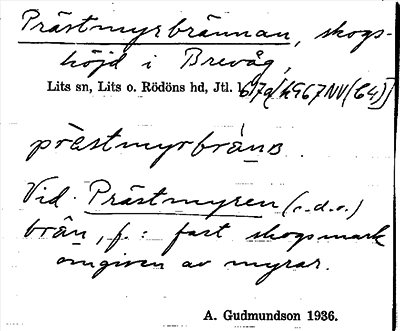 Prästmyrbrännan, skogs-
höjd i Brevåg,
Lits sn, Lits o. Rödöns hd, Jtl.
prästmyrbränɴ.
Vid Prästmyren (s.d.o.)
brän, f.: fast skogsmark
omgiven av myrar.
A. Gudmundson 1936.